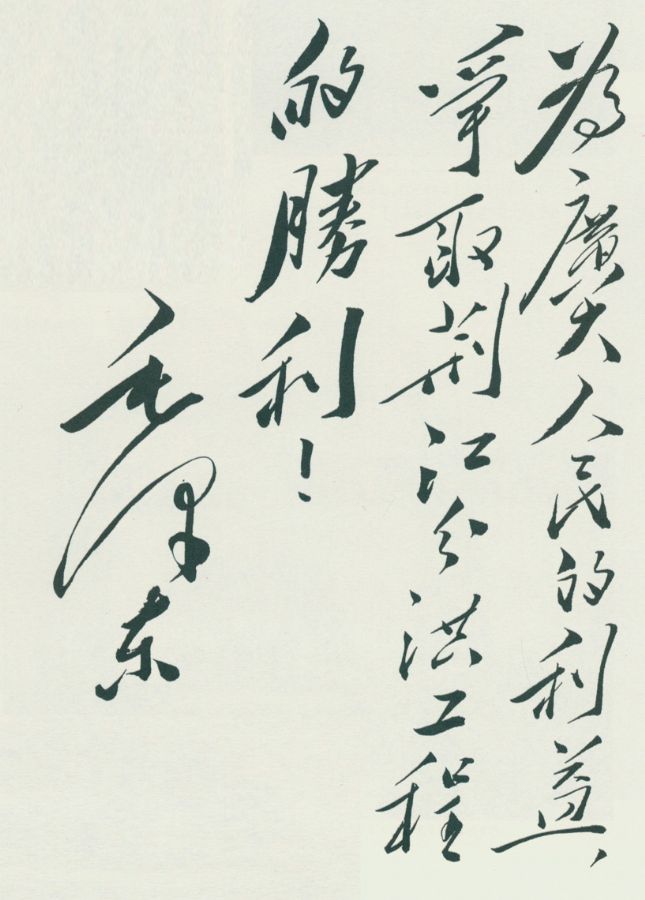 為廣大人民的利益
爭取荊江分洪工程
的勝利！
毛泽东